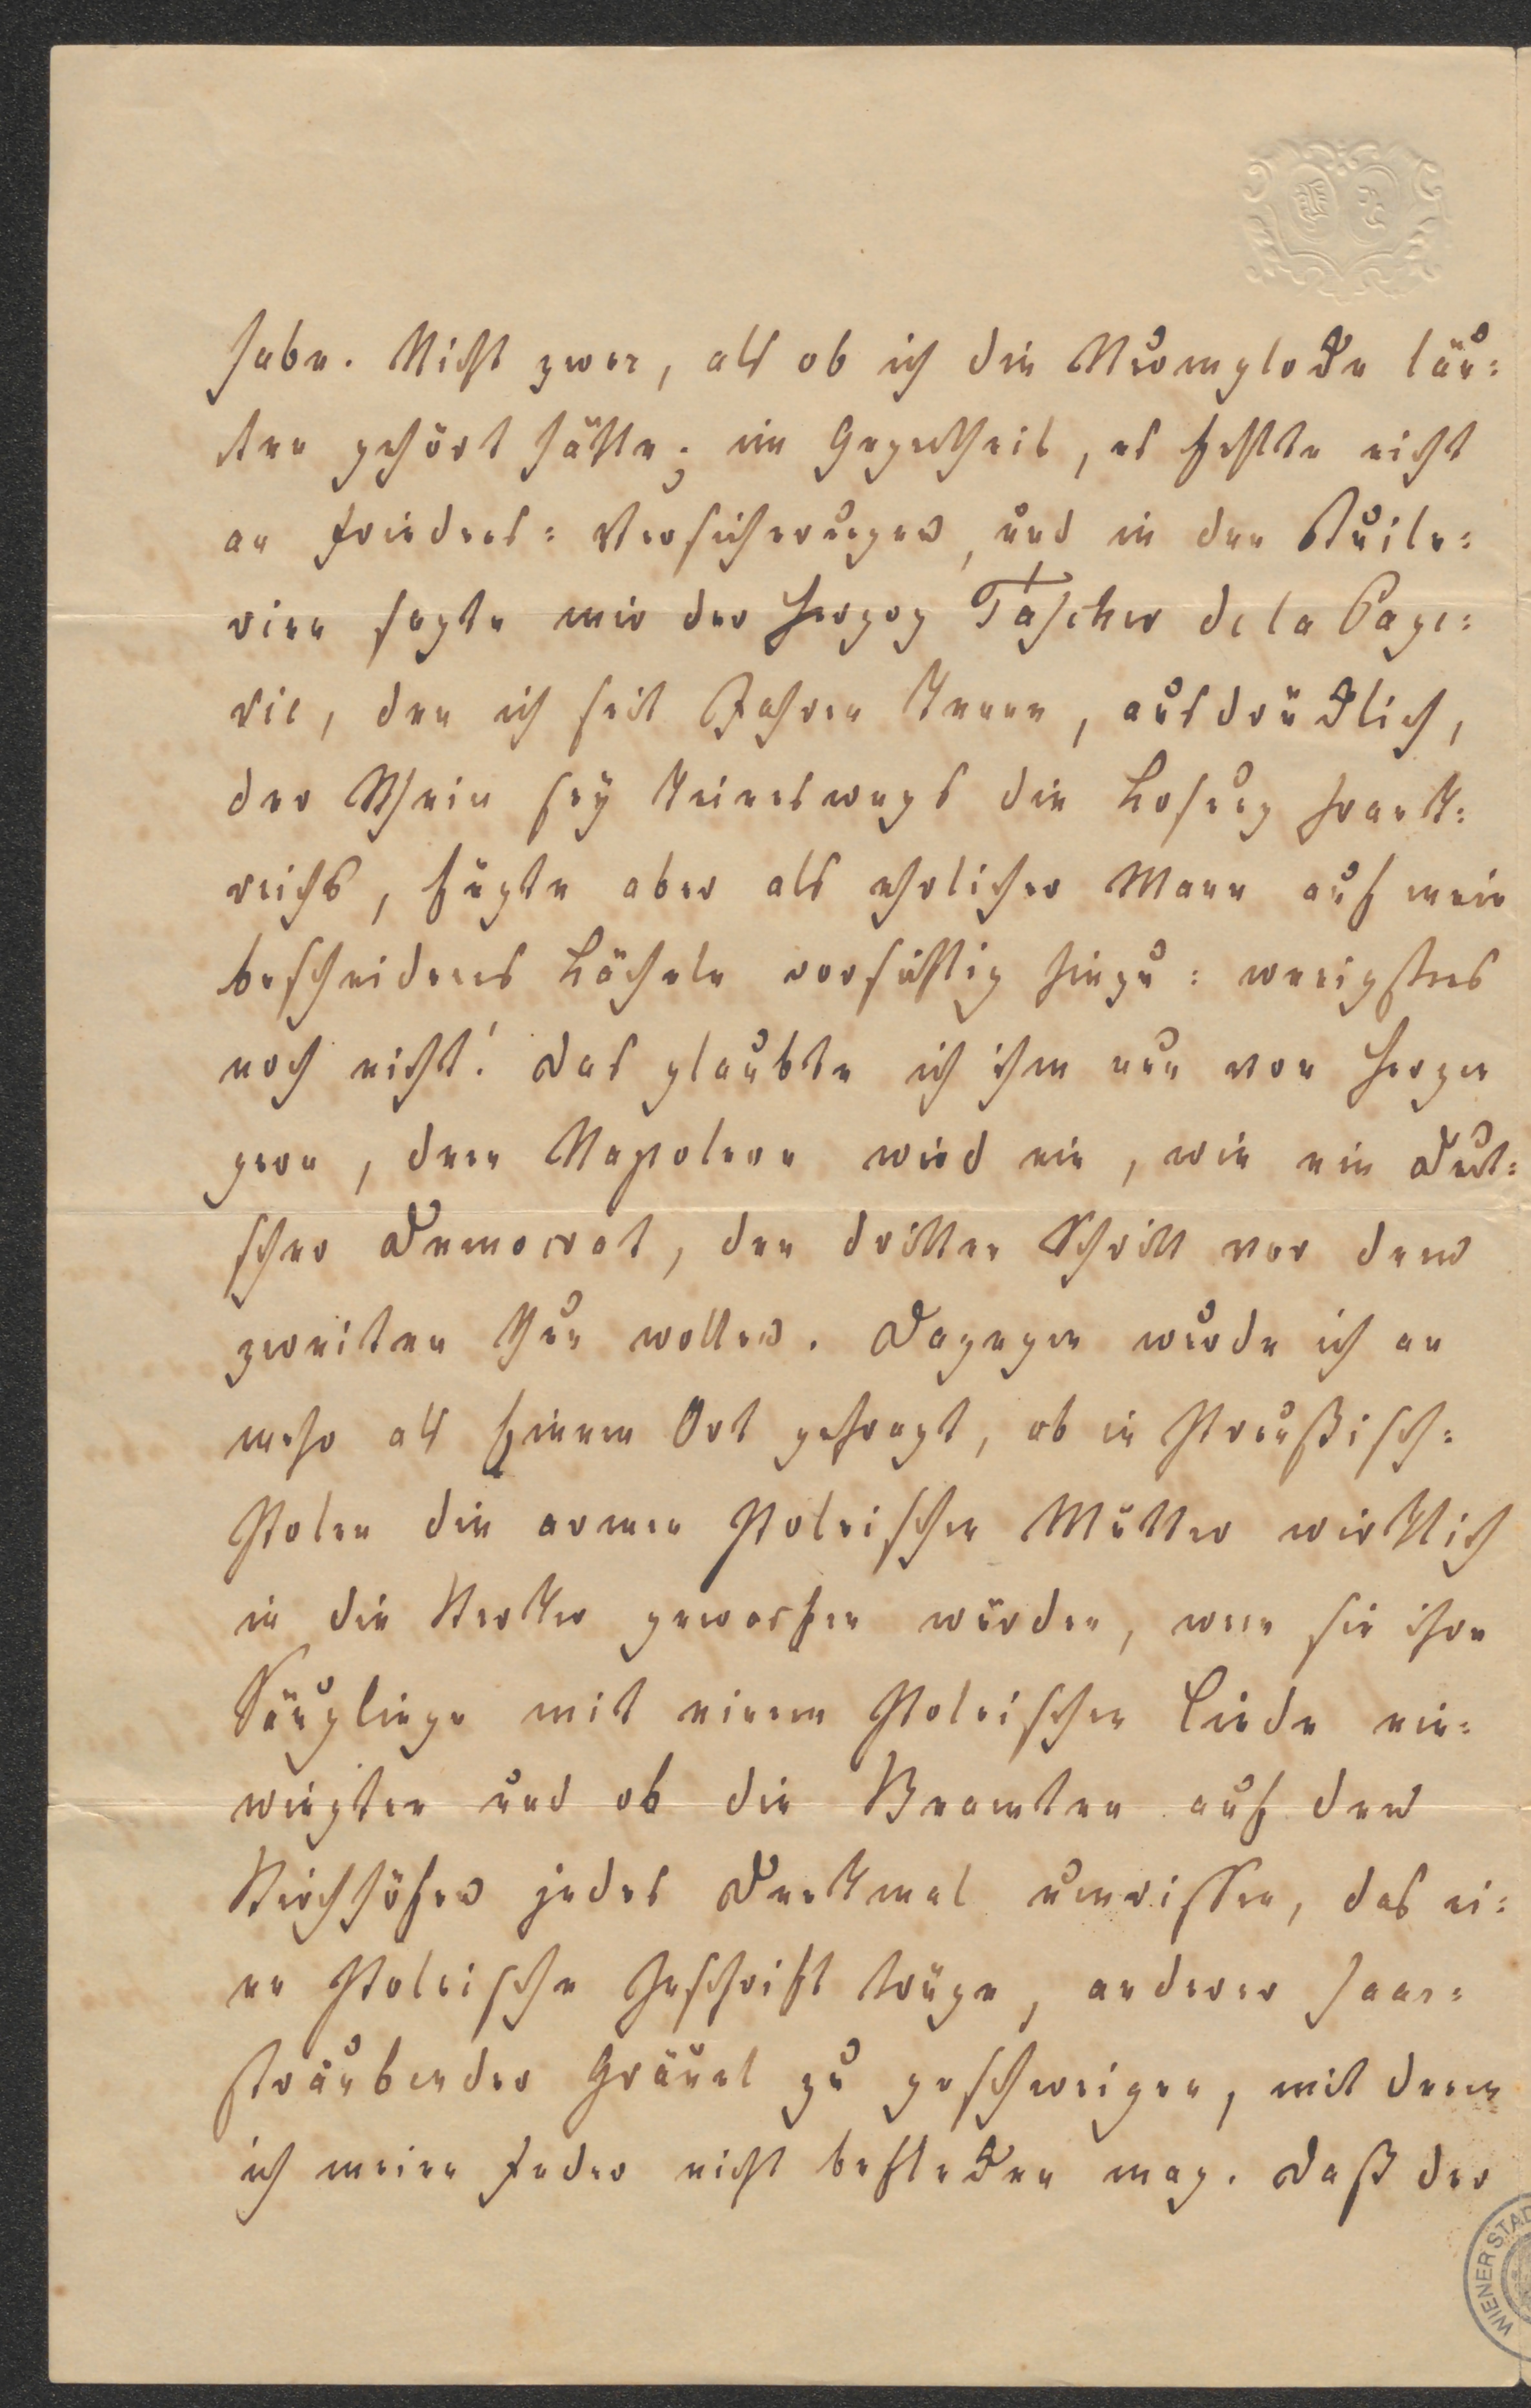 habe. Nicht zwar, als ob ich die Sturmglocke läu=
ten gehört hätte; im Gegentheil, es fehlte nicht
an Friedens=Versicherungen, und in den Tuile=
rien sagte mir der Herzog Tascher de la Page=
rie, den ich seit Jahren kenne, ausdrücklich,
der Rhein sey keineswegs die Losung Frank=
reichs, fügte aber als ehrlicher Mann auf mein
bescheidenes Lächeln vorsichtig hinzu: wenigstens
noch nicht! Das glaubte ich ihm nun von Herzen
gern, denn Napoleon wird nie, wie ein Deut=
scher Democrat, den dritten Schritt vor dem
zweiten thun wollen. Dagegen wurde ich an
mehr als Einem Ort gefragt, ob in Preußisch=
Polen die armen Polnischen Mütter wirklich
in die Kerker geworfen würden, wenn sie ihre
Säuglinge mit einem Polnischen Liede ein=
wiegten und ob die Beamten auf den
Kirchhöfen jedes Denkmal umrissen, das ei=
ne Polnische Inschrift trüge, anderer haar=
sträubender Gräuel zu geschweigen, mit denen
ich meine Feder nicht beflecken mag. Daß der
WIENER STAD